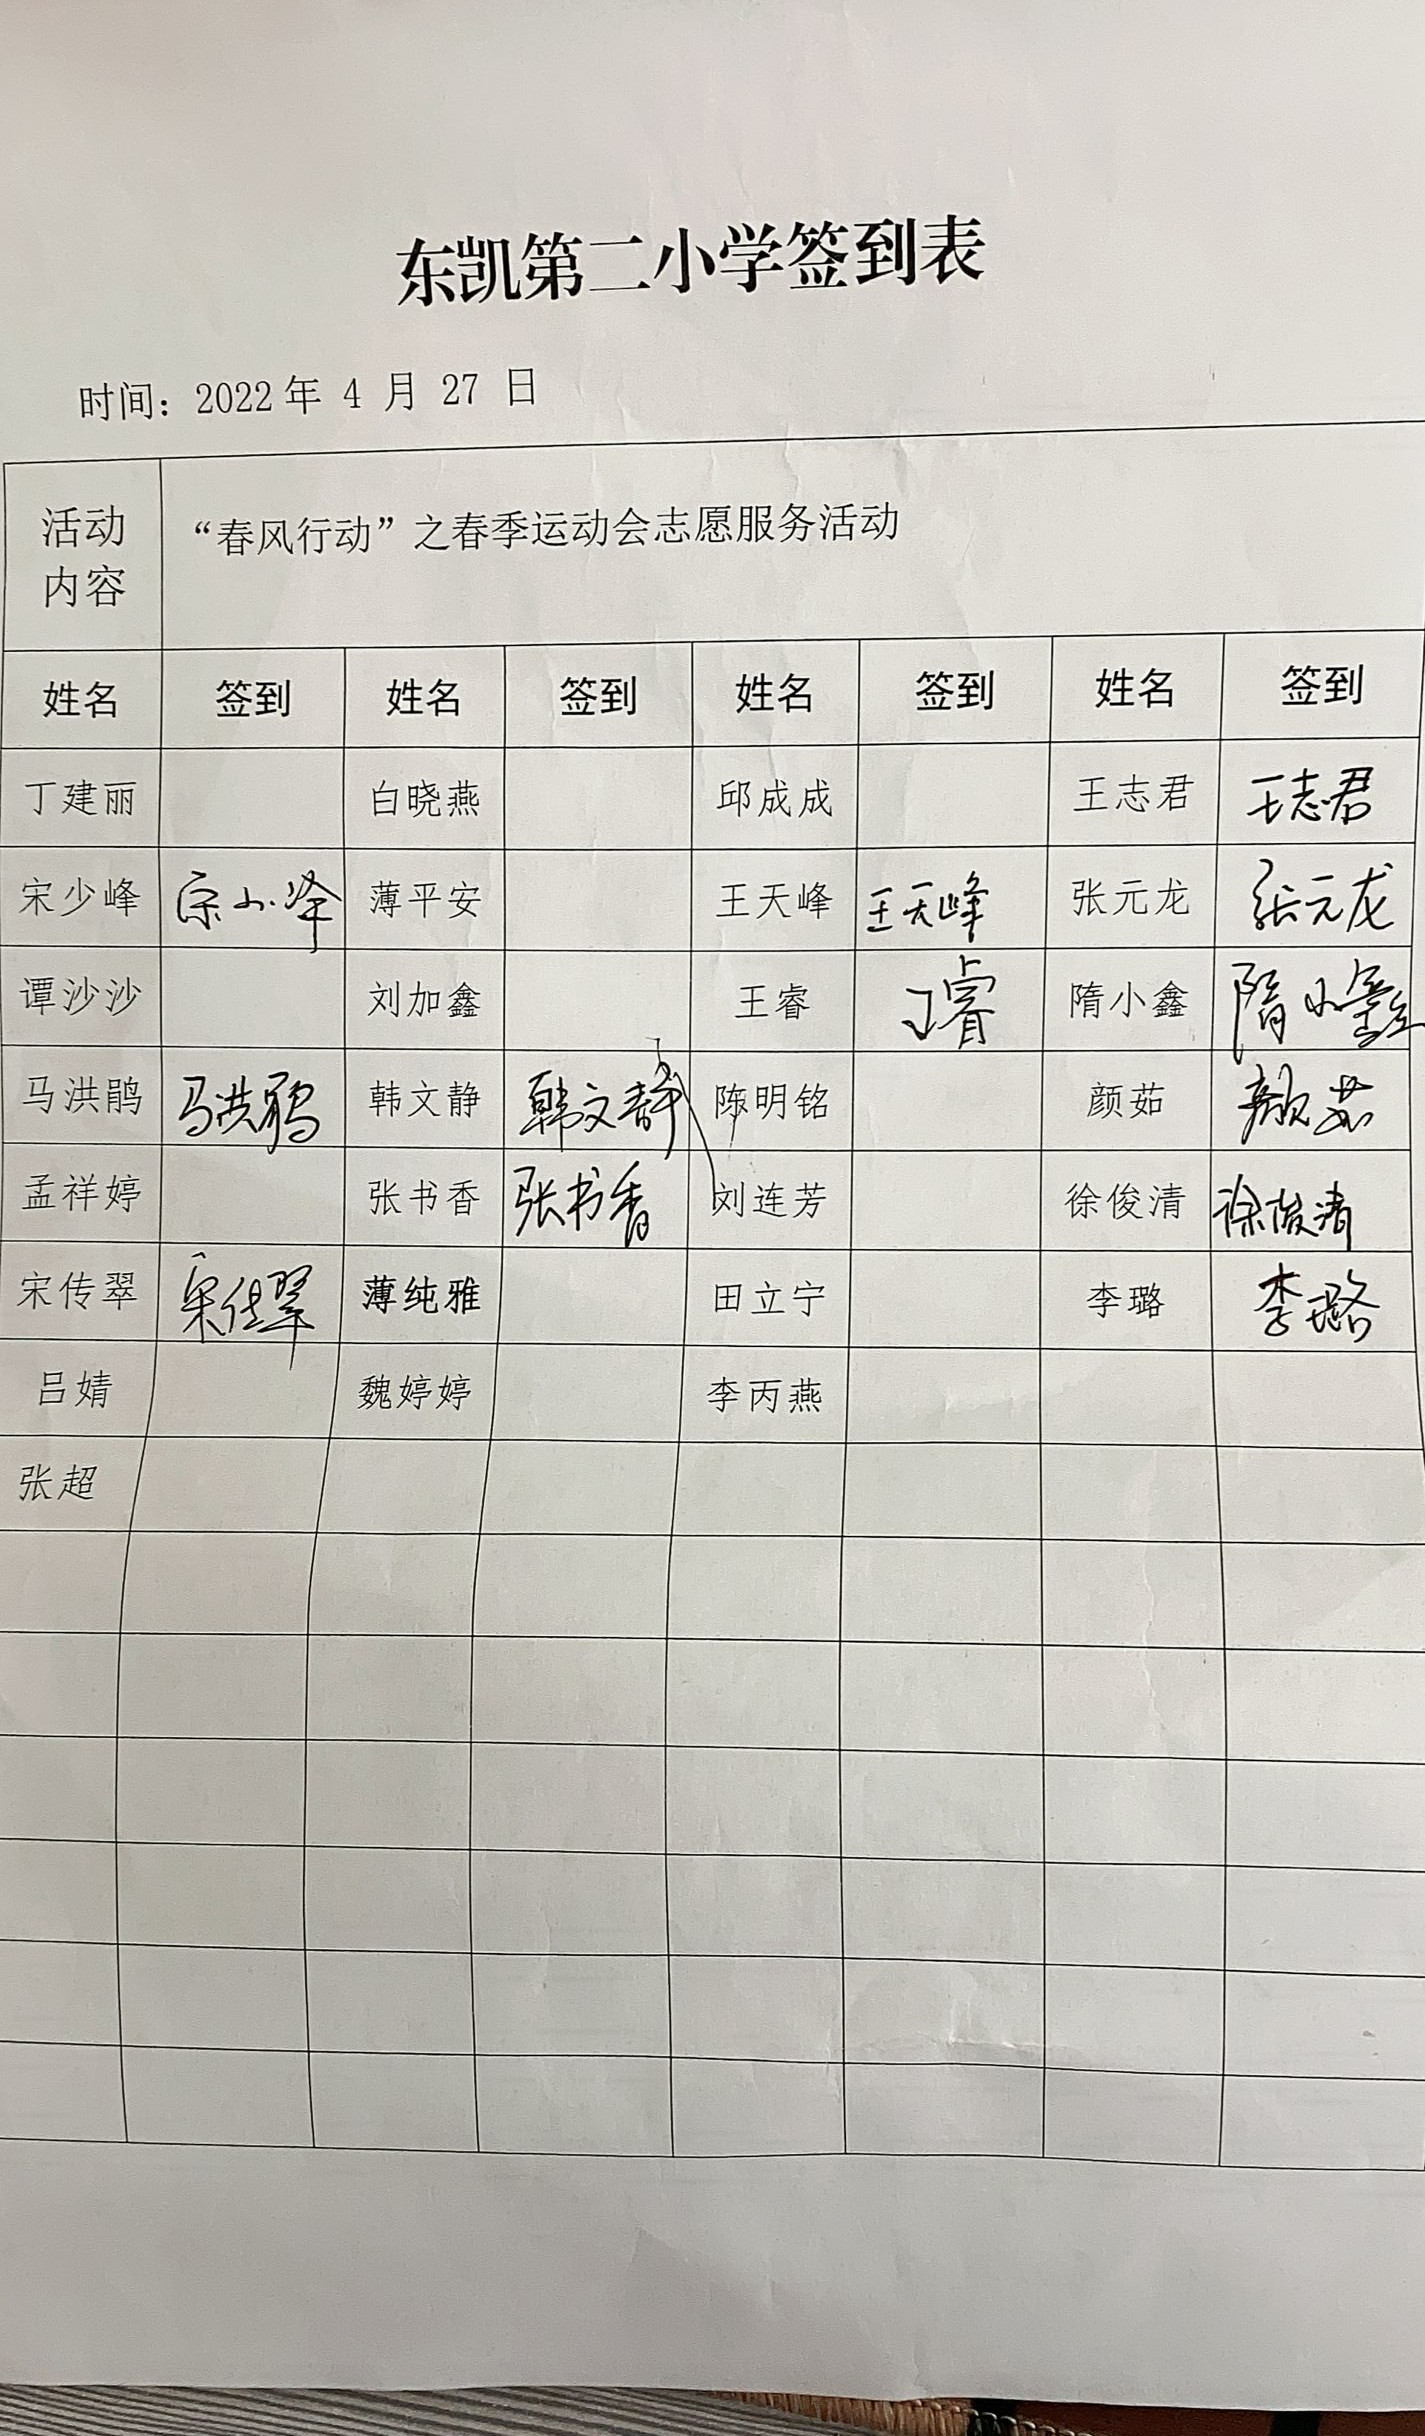 东凯第二小学签到表
时间：2022年 4 月 27 日
活动
内容
“春风行动”之春季运动会志愿服务活动
姓名 签到 姓名 签到 姓名 签到 姓名 签到
丁建丽 白晓燕 邱成成 王志君 王志君
宋少峰 宋少峰 薄平安 王天峰 王天峰 张元龙 张元龙
谭沙沙 刘加鑫 王睿 王睿 隋小鑫 隋小鑫
马洪鹃 马洪鹃 韩文静 韩文静 陈明铭 颜茹 颜茹
孟祥婷 张书香 张书香 刘连芳 徐俊清 徐俊清
宋传翠 宋传翠 薄纯雅 田立宁 李璐 李璐
吕婧 魏婷婷 李丙燕
张超